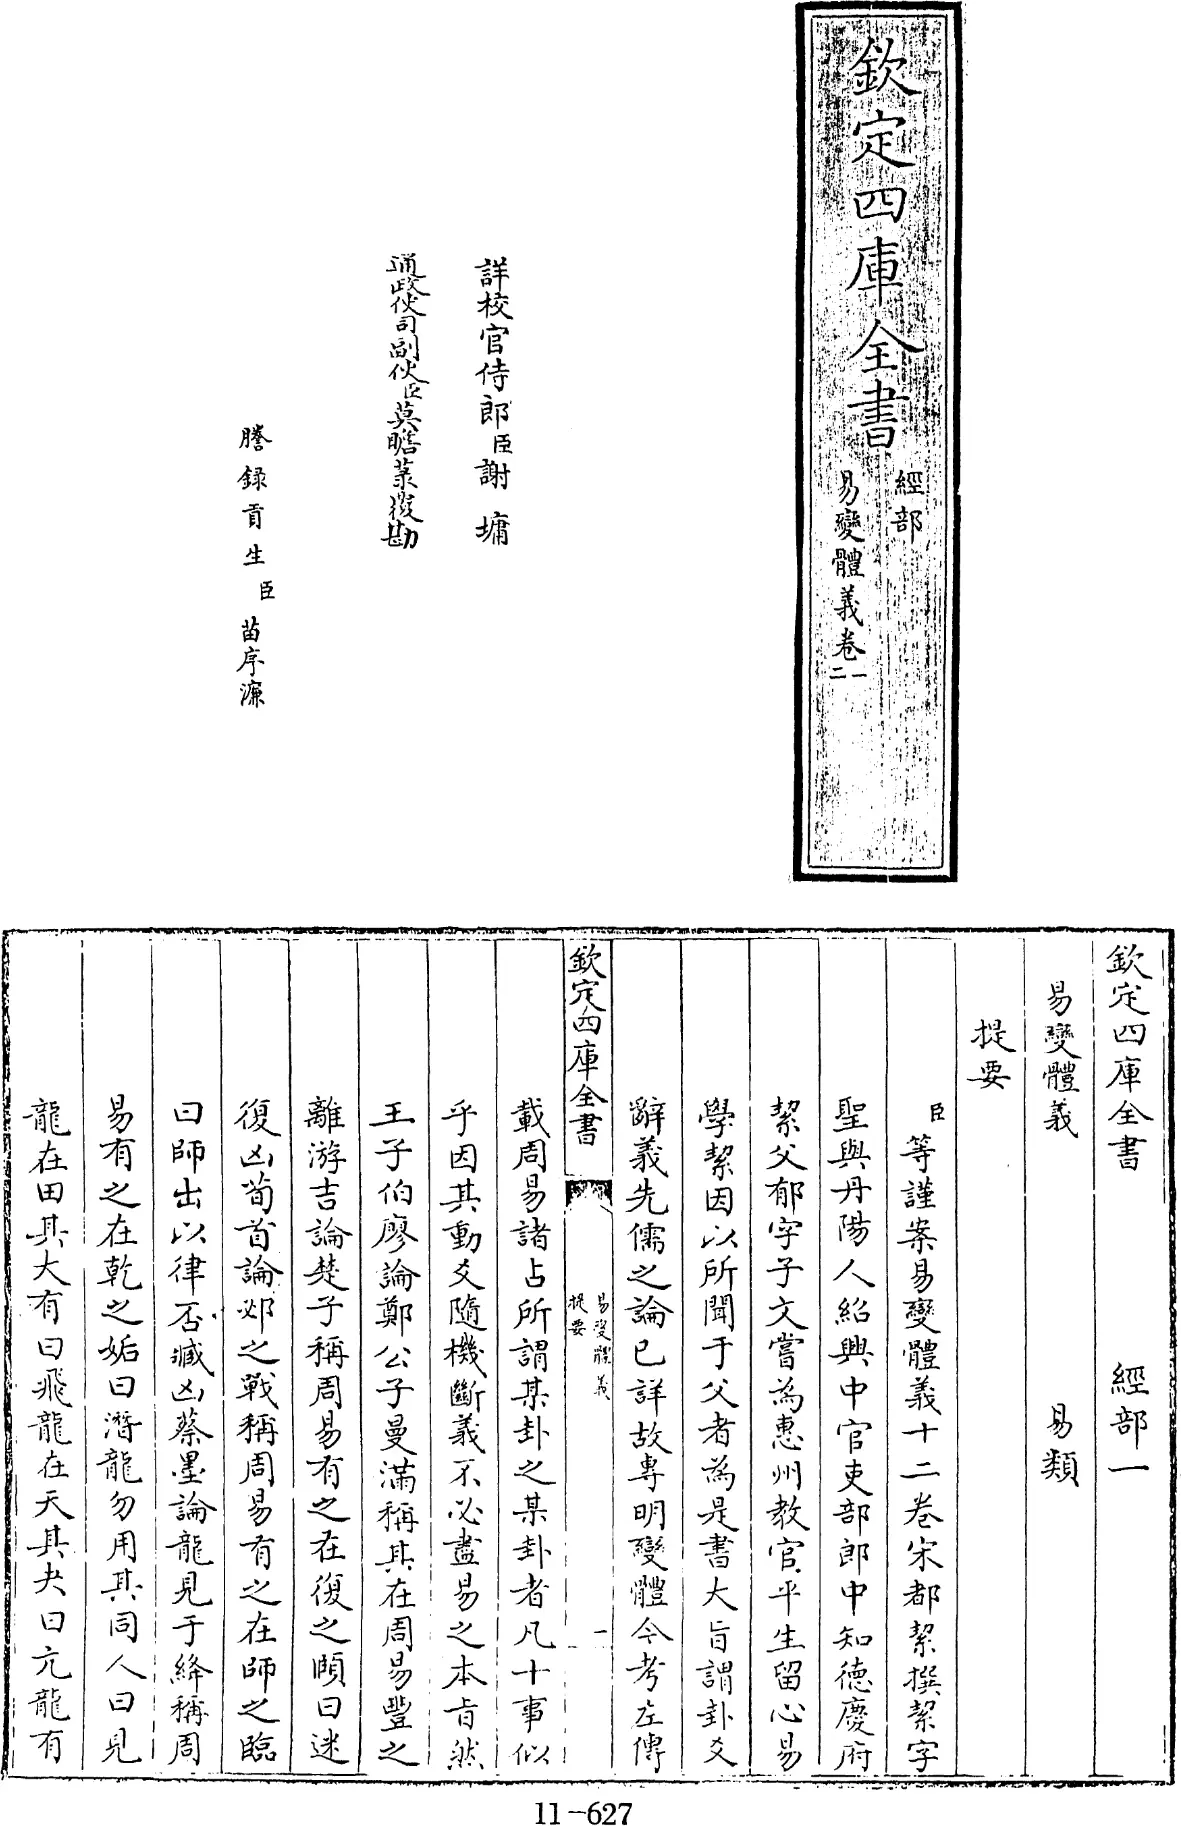 欽定四庫全書
經部
易變體義卷一
二
詳校官侍郎臣謝墉
通政使司副使臣莫瞻菉覆勘
謄錄貢生臣苗序濂
欽定四庫全書 經部一
易變體義 易類
提要
臣等謹案易變體義十二卷宋都絜撰絜字
聖與丹陽人紹興中官吏部郎中知德慶府
絜父郁字子文嘗為惠州教官平生留心易
學絜因以所聞于父者為是書大旨謂卦爻
辭義先儒之論已詳故專明變體今考左傳
欽定四庫全書
易變體義
提要
一
載周易諸占所謂某卦之某卦者凡十事似
乎因其動爻隨機斷義不必盡易之本旨然
王子伯廖論鄭公子曼滿稱其在周易豐之
離游吉論楚子稱周易有之在復之頤曰迷
復凶荀首論邲之戰稱周易有之在師之臨
曰師出以律否臧凶蔡墨論龍見于絳稱周
易有之在乾之姤曰潛龍勿用其同人曰見
龍在田其大有曰飛龍在天其夬曰亢龍有
11-627